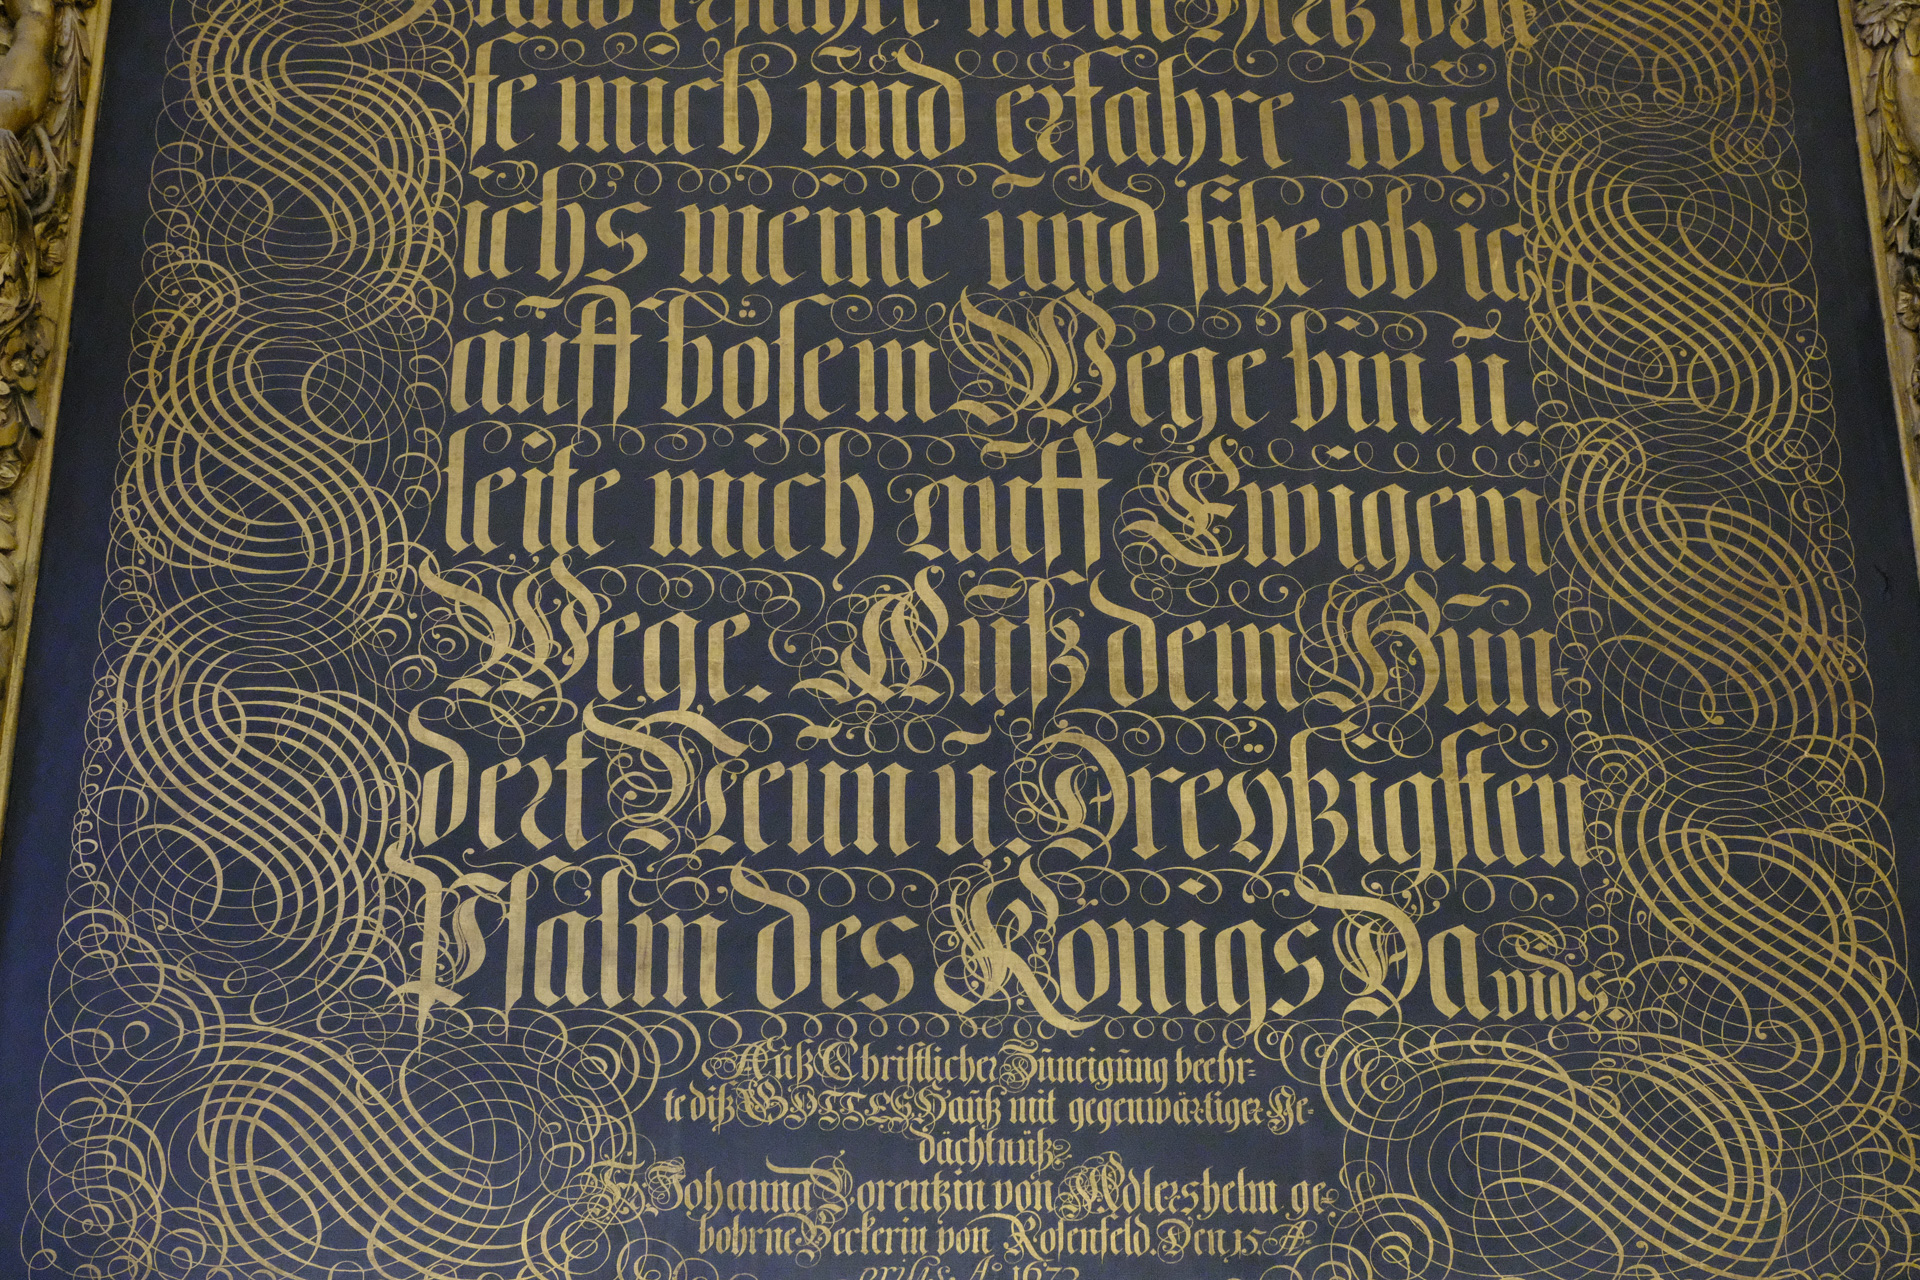 und erfahre mein Hertz prü
fe mich ūnd erfahre wie
ichs meine ūnd sihe ob ich
aūff bösem Wege bin ū.
leite mich aūff Ewigem
Wege. Aūß dem Hūn
dert Neūn ū. Dreyßigsten
Psalm des Königs Davids.
Aūß Christlicher Zūneigūng beehr-
te diß GOTTES Haūß mit gegenwärtiger Ge-
dächtnūß
F. Johanna Lorentzin von Adlershelm ge-
bohrne Beckerin von Rosenfeld. Den 15. A-
prilis Aº 167